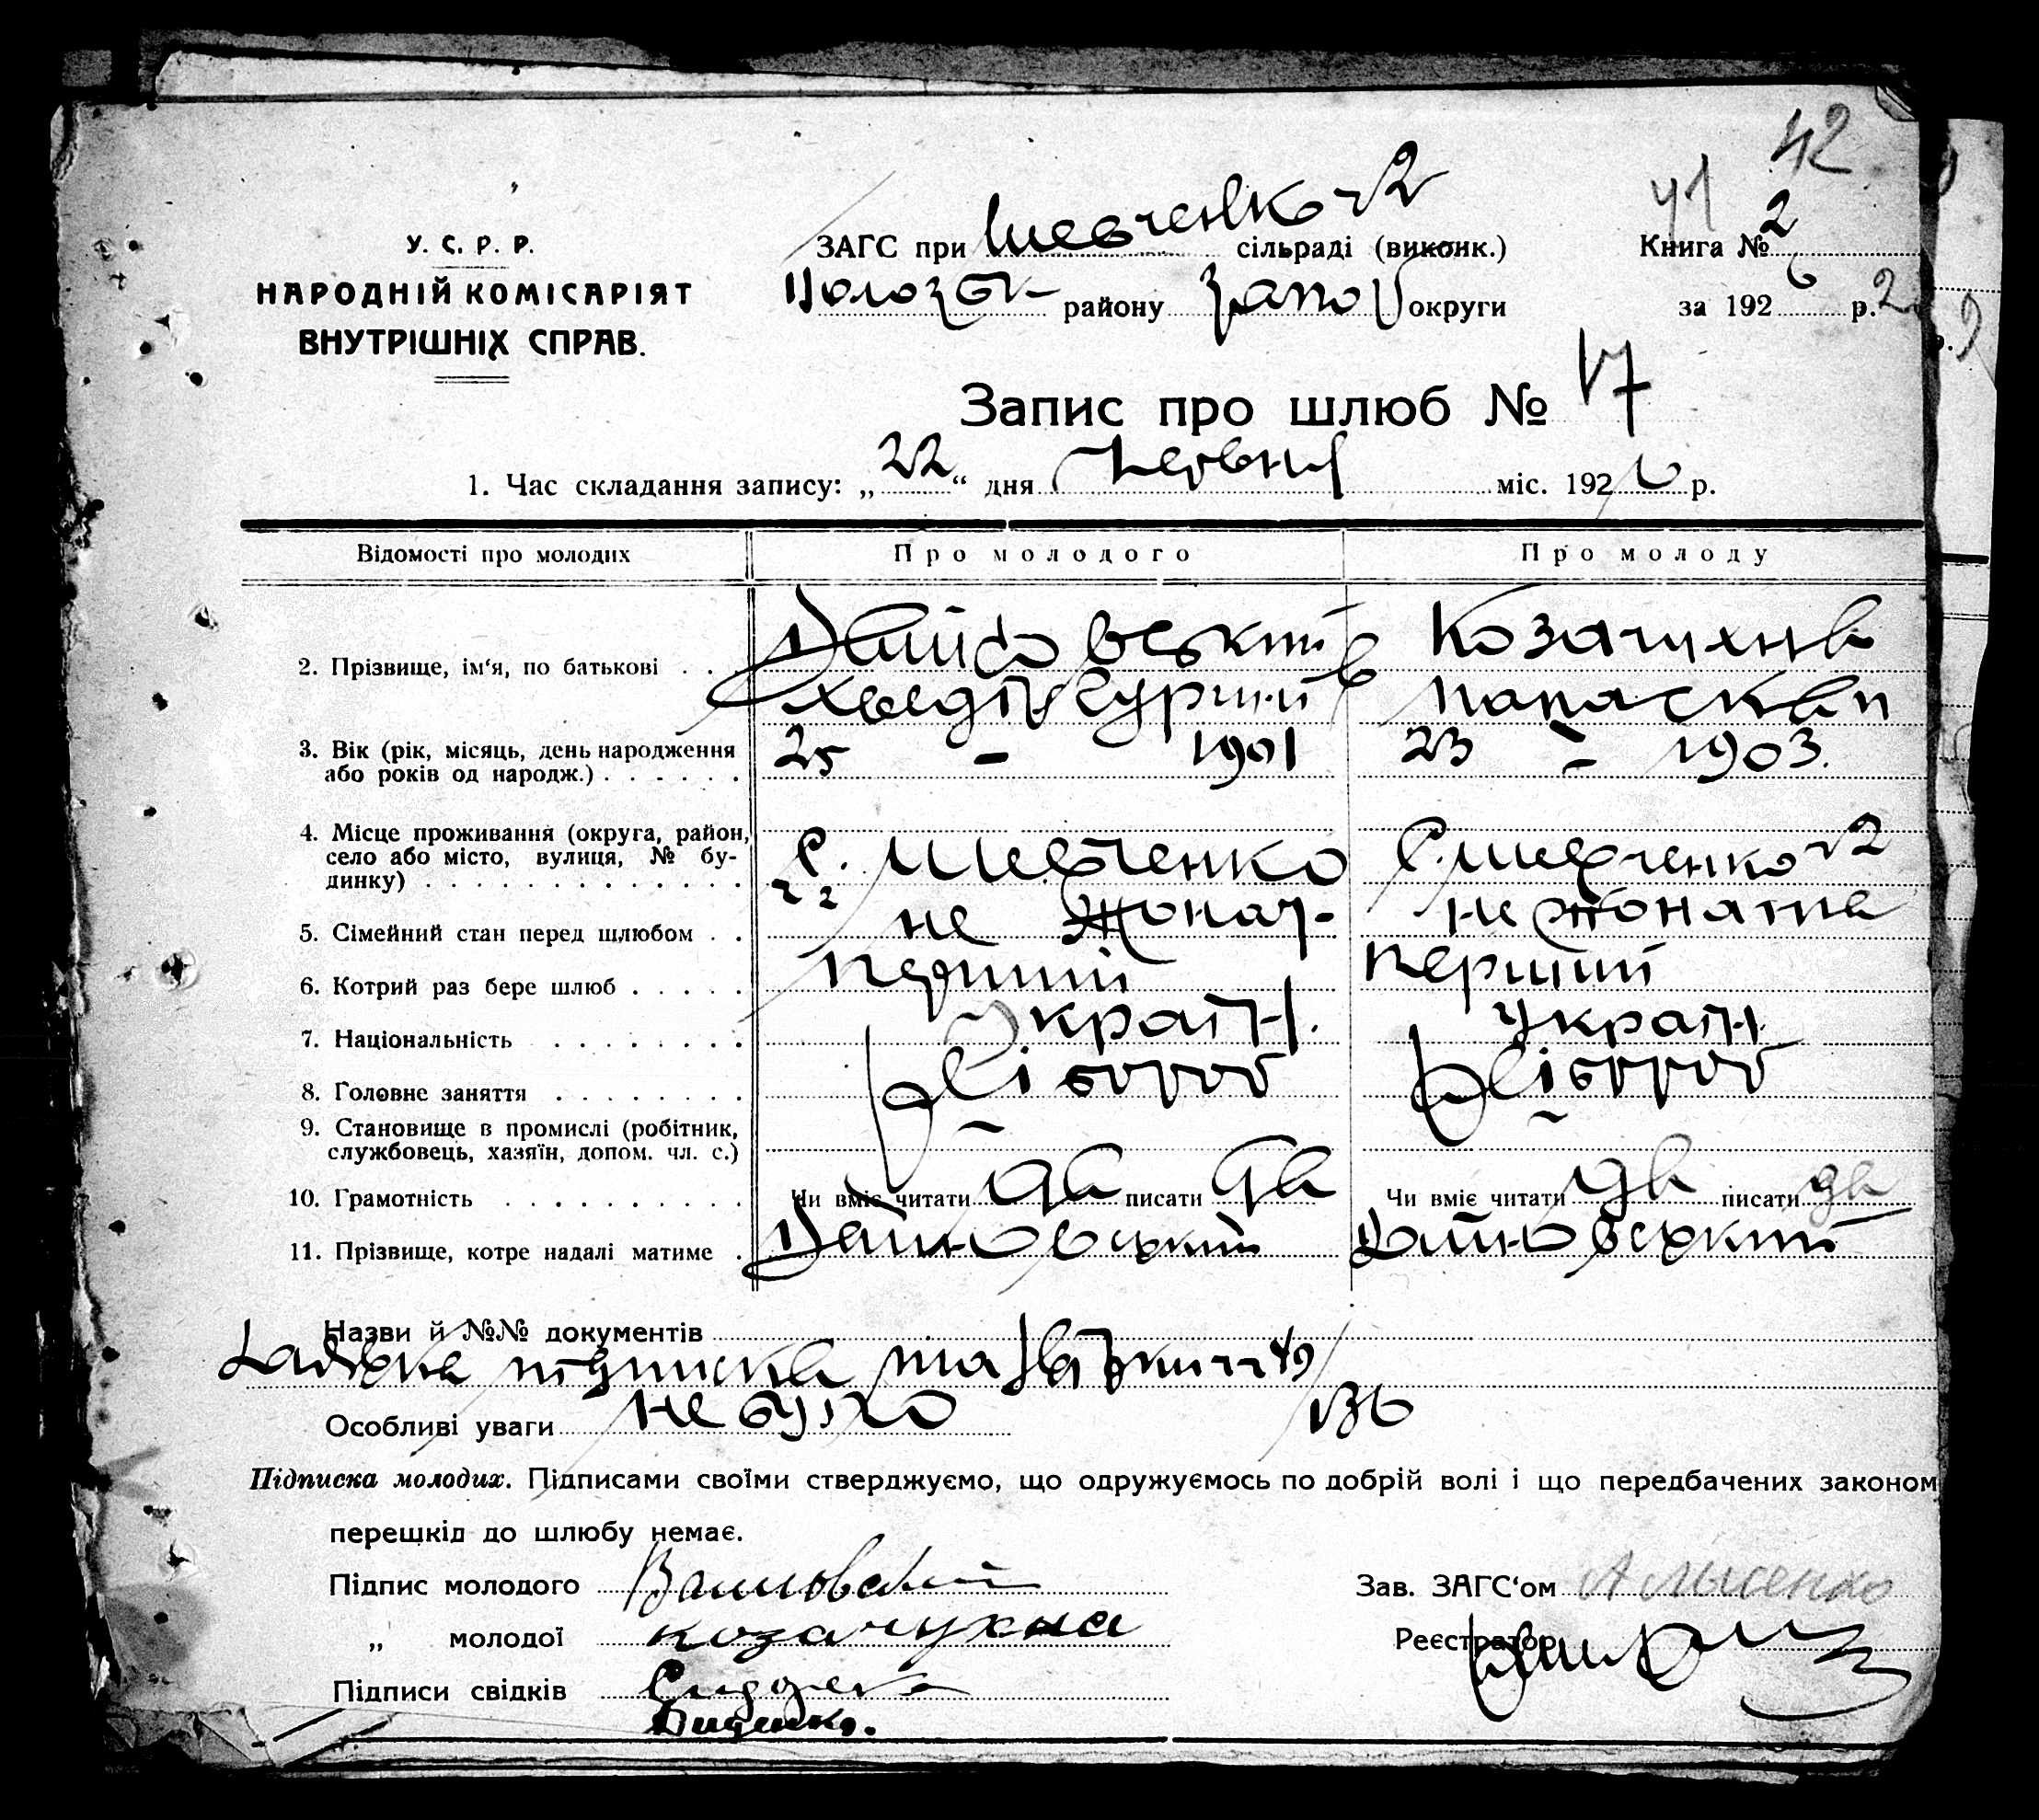 42
41
У. С. Р. Р.
НАРОДНІЙ КОМІСАРІЯТ
ВНУТРІШНІХ СПРАВ.
ЗАГС при Шевченко 2 сільраді (виконк.)
району Запор округи
Книга № 2
за 1926 р. 2
Запис про шлюб № 17
1. Час складання запису: „22“ дня Червня міс. 1926 р.
Відомості про молодих Про молодого Про молоду
2. Прізвище, ім‘я, по батькові . . Козачухна
3. Вік (рік, місяць, день народження або років од народж.) . . . . . . 25 – 1901 23 – 1903.
4. Місце проживання (округа, район, село або місто, вулиця, № будинку) . . . . . . . . . . . . . С. Шевченко С. Шевченко 2
5. Сімейний стан перед шлюбом . . не жонат. не жоната
6. Котрий раз бере шлюб . . . . . Перший Перший
7. Національність . . . . . . . . Україн. Україн.
8. Головне заняття . . . . . . . . Хлібороб Хлібороб
9. Становище в промислі (робітник, службовець, хазяїн, допом. чл. с.) – –
10. Грамотність . . . . . . . . . . Чи вміє читати да писати да Чи вміє читати да писати да
11. Прізвище, котре надалі матиме . Войновський Войновський
Назви й №№ документів
підписка та 49/136
Особливі уваги не було
Підписка молодих. Підписами своїми стверджуємо, що одружуємось по добрій волі і що передбачених законом
перешкід до шлюбу немає.
Підпис молодого
„ молодої Козачухна
Підписи свідків
Зав. ЗАГС‘ом А Лысенко
Реєстратор